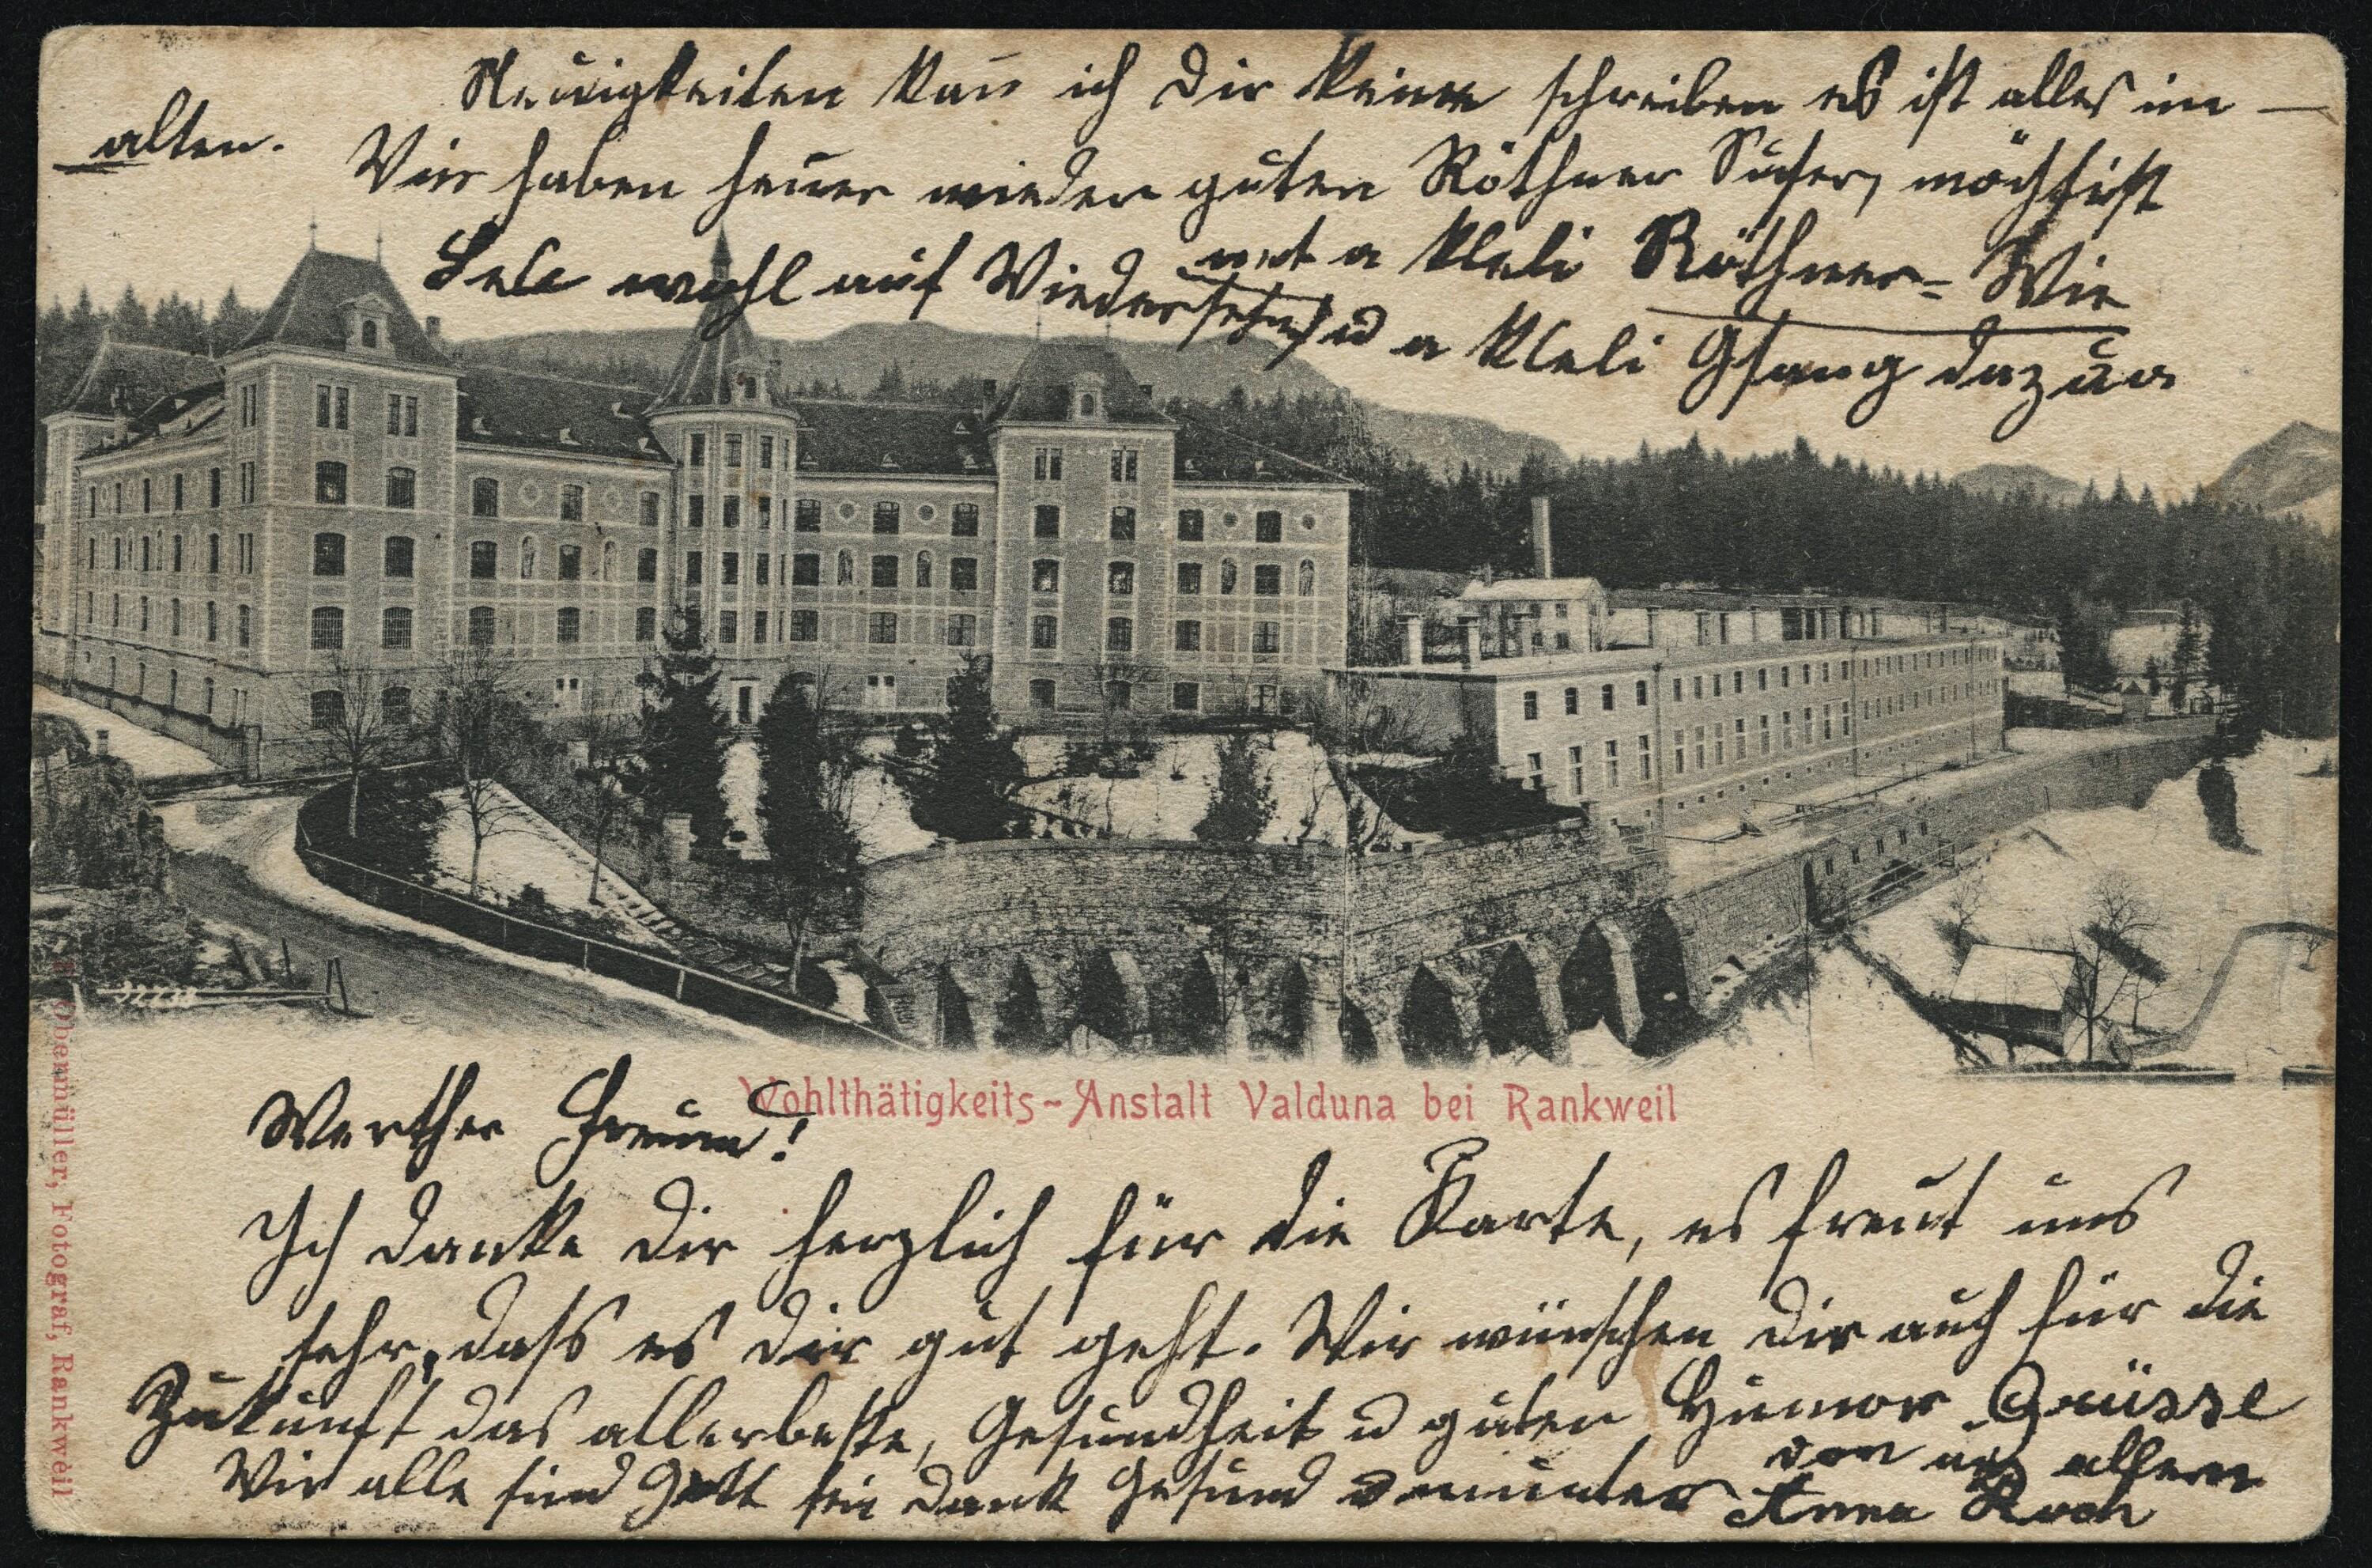 Neuigkeiten kan̄ ich Dir keine schreiben es ist alles im
alten.
Wir haben heuer wieder guten Röthner Suser, möchtist
net a kleli Röthner= Wie
u a kleli Gsang dazua
Lebe wohl auf Wiedersehn
Wohlthätigkeits-Anstalt Valduna bei Rankweil
Werther Freund!
Ich danke Dir herzlich für die Karte, es freut uns
sehr, dass es dir gut geht. Wir wünschen Dir auch für die
Zukunft das allerbeste, Gesundheit u guten Humor
Wir alle sind Gott sei dank Gesund u munter
Grüsse
von uns allen
Anna Koch
Obermüller, Fotograf, Rankweil
32733